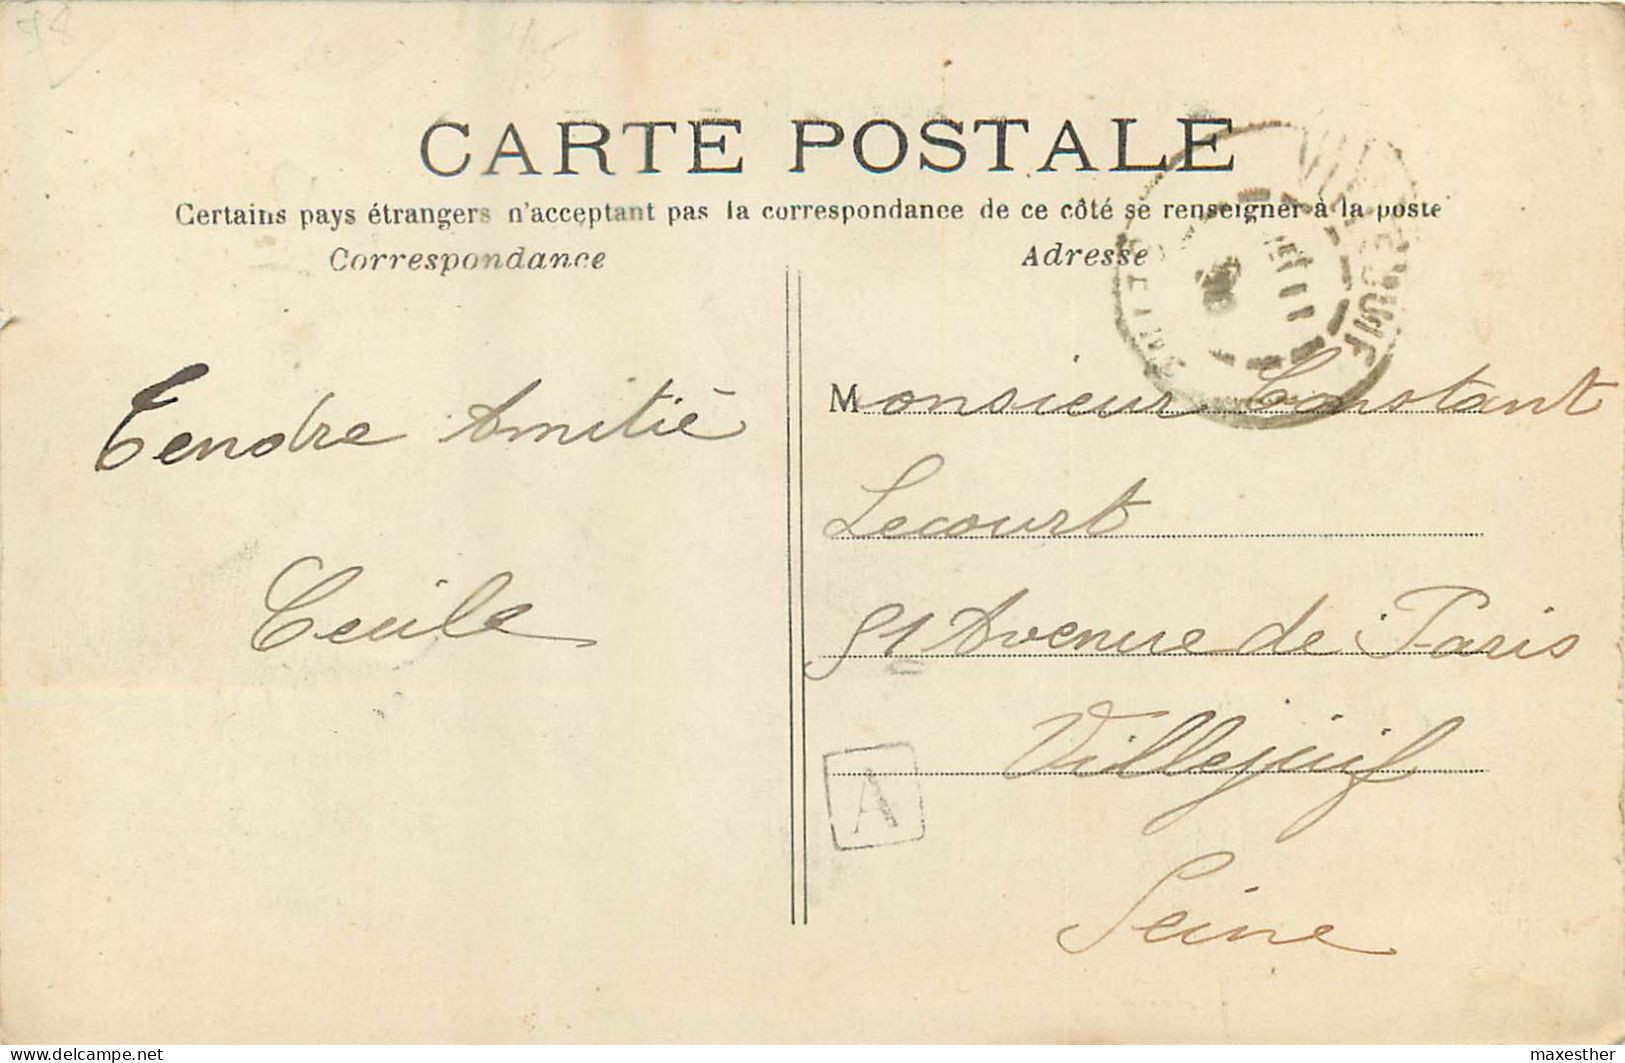 CARTE POSTALE
Certains pays étrangers n'acceptant pas la correspondance de ce côté se renseigner à la poste
Correspondance
Adresse
VILLEJUIF
SEINE
Tendre Amitié
Cecile
Monsieur Constant
Lecourt
51 Avenue de Paris
Villejuif
A
Seine
delcampe.net
maxesther